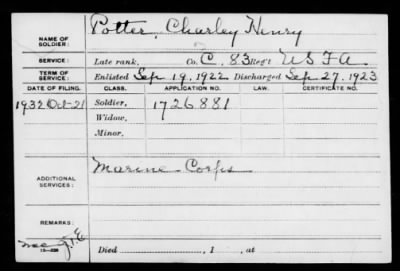 NAME OF SOLDIER: Potter, Charley Henry
SERVICE: Late rank, Co. C, 83 Reg't U S F A
TERM OF SERVICE: Enlisted Sep 19, 1922 Discharged Sep. 27, 1923
DATE OF FILING. CLASS. APPLICATION NO. LAW. CERTIFICATE NO.
1932 Oct-21 Soldier, 1726881
Widow,
Minor,
ADDITIONAL SERVICES: Marine Corps
REMARKS:
Died , 1 , at